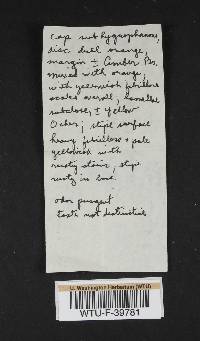 cap not hygrophanous,
disc dull orange,
margin ± Amber Br.
mixed with orange,
with yellowish fibrillose
scales overall, lamellae
subclose, ± Yellow
Ocher; stipe surface
heavy fibrillose + pale
yellowish with
rusty stains, stipe
rusty in base
odor pungent
taste not distinctive
U. Washington Herbarium (WTU)
WTU-F-39781